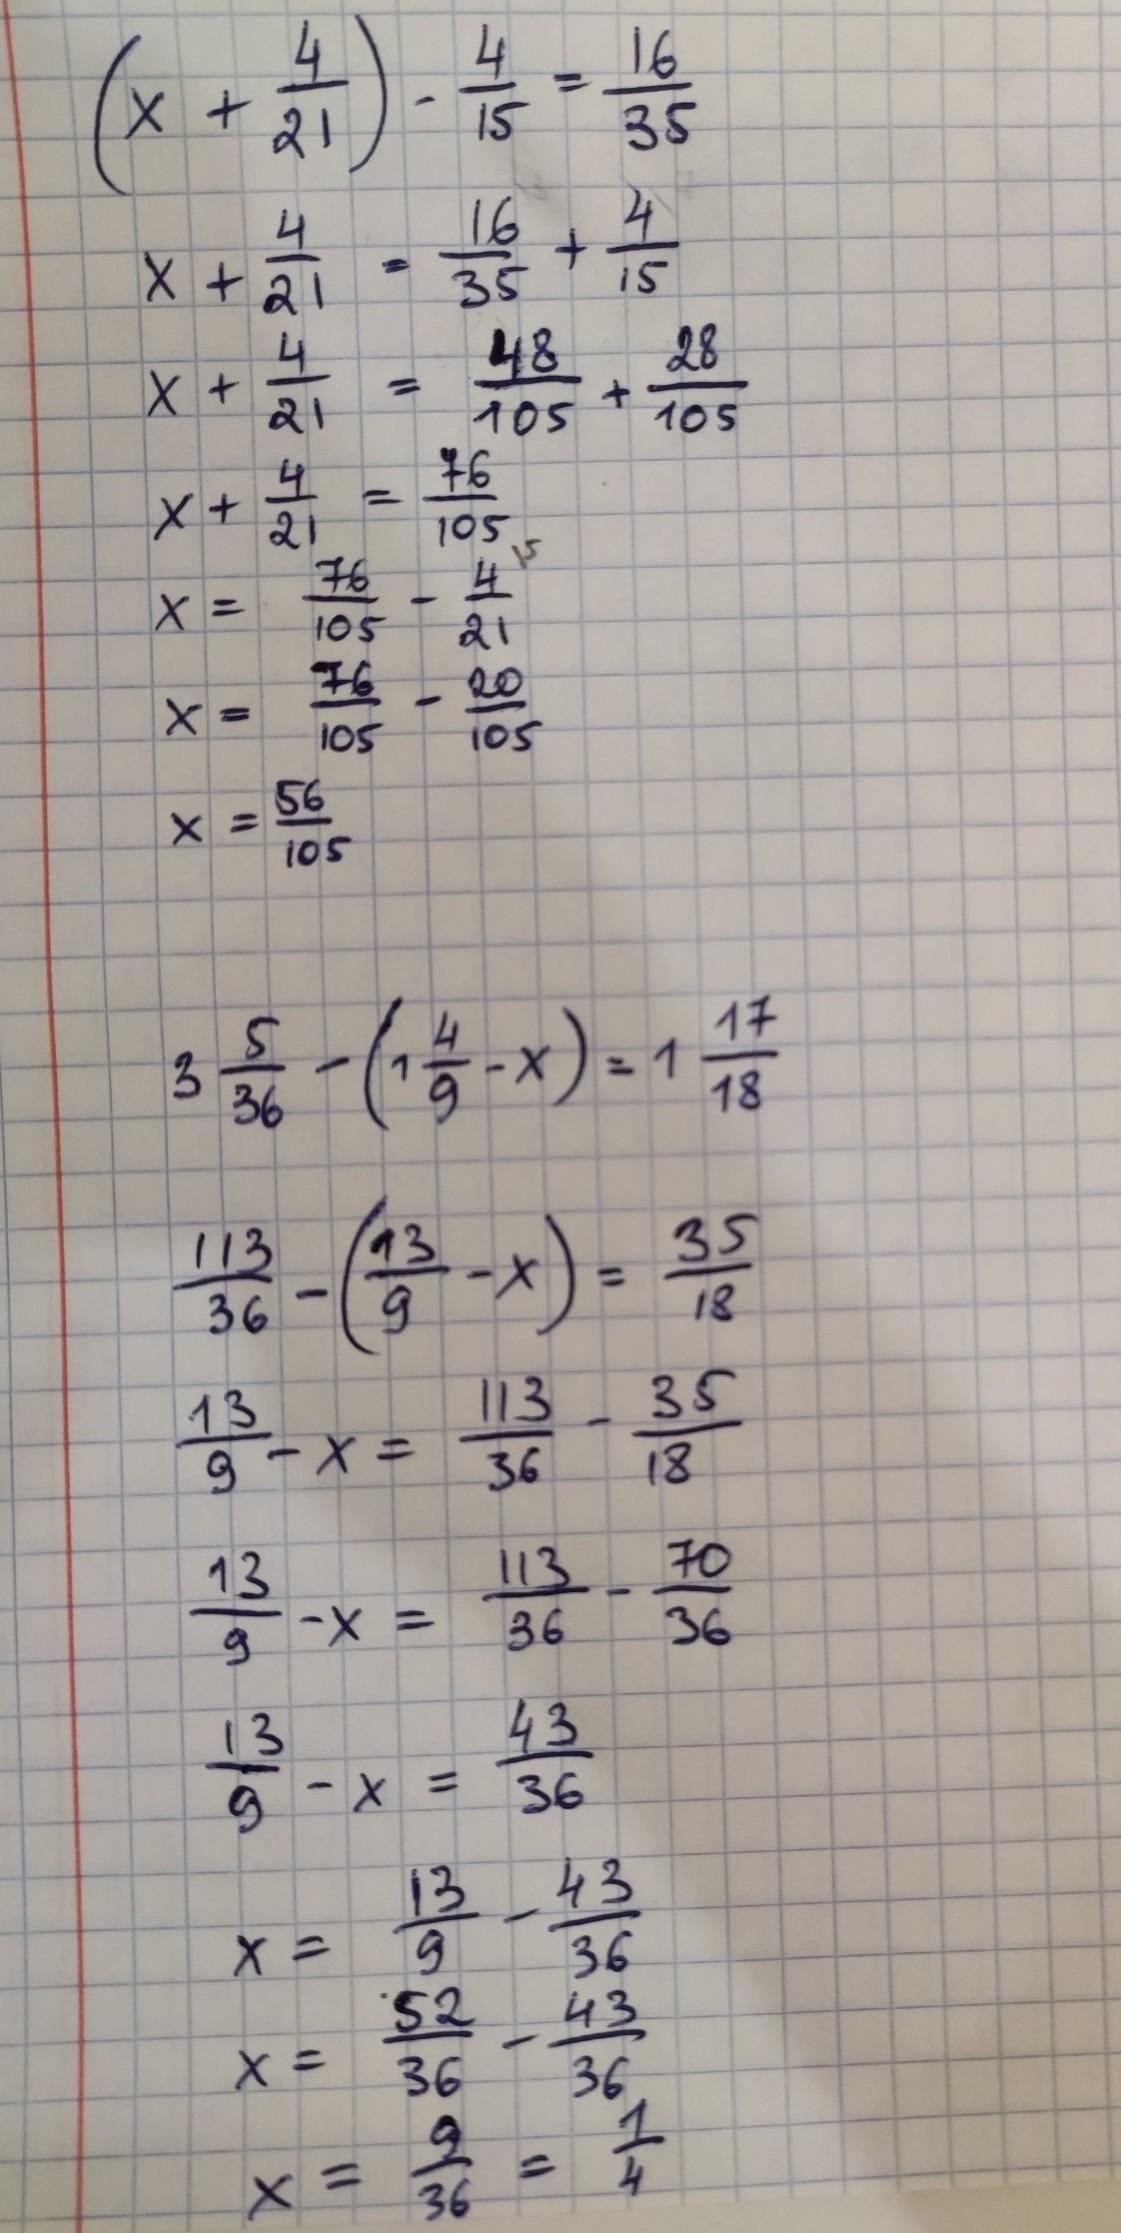 (x + 4/21) - 4/15 = 16/35
x + 4/21 = 16/35 + 4/15
x + 4/21 = 48/105 + 28/105
x + 4/21 = 76/105
15
x = 76/105 - 4/21
x = 76/105 - 20/105
x = 56/105
3 5/36 - (1 4/9 - x) = 1 17/18
113/36 - (13/9 - x) = 35/18
13/9 - x = 113/36 - 35/18
13/9 - x = 113/36 - 70/36
13/9 - x = 43/36
x = 13/9 - 43/36
x = 52/36 - 43/36
x = 9/36 = 1/4